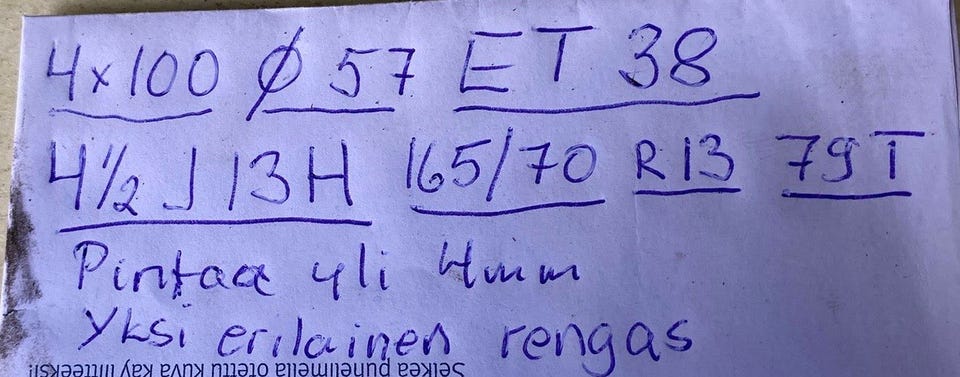 4x100 Ø 57 ET 38
4½ J 13H 165/70 R13 79T
Pintaa yli 4mm
Yksi erilainen rengas
Selkeä puhelimella otettu kuva käy liitteeksi!